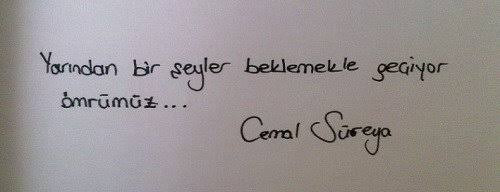 Yarından bir şeyler beklemekle geçiyor
ömrümüz...
Cemal Süreya